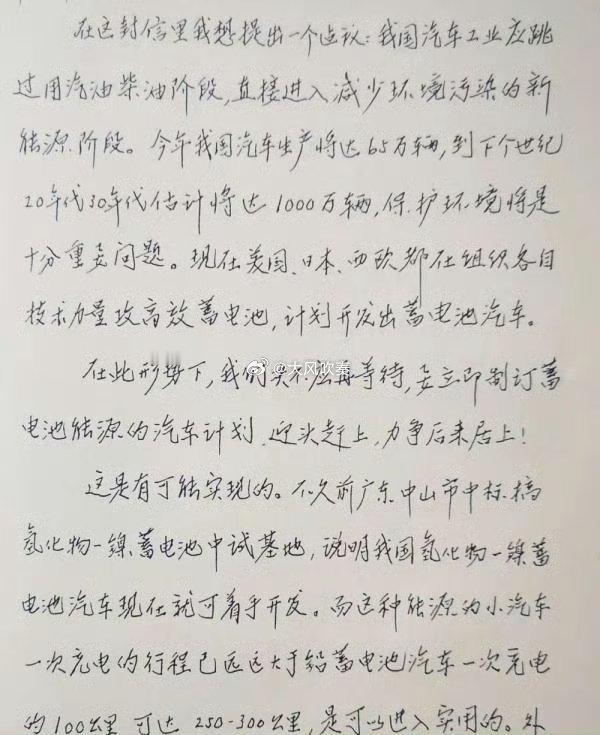 在这封信里我想提出一个建议：我国汽车工业应跳
过用汽油柴油阶段，直接进入减少环境污染的新
能源阶段。今年我国汽车生产将达65万辆，到下个世纪
20年代30年代估计将达1000万辆，保护环境将是
十分重要问题。现在美国、日本、西欧都在组织各自
技术力量攻高效蓄电池，计划开发出蓄电池汽车。
@大风吹秦
在此形势下，我们决不应再等待，要立即制订蓄
电池能源的汽车计划，迎头赶上，力争后来居上！
这是有可能实现的。不久前广东中山市中标搞
氢化物—镍蓄电池中试基地，说明我国氢化物—镍蓄
电池汽车现在就可着手开发。而这种能源的小汽车
一次充电的行程已远远大于铅蓄电池汽车一次充电
的100公里，可达250-300公里，是可以进入实用的。外